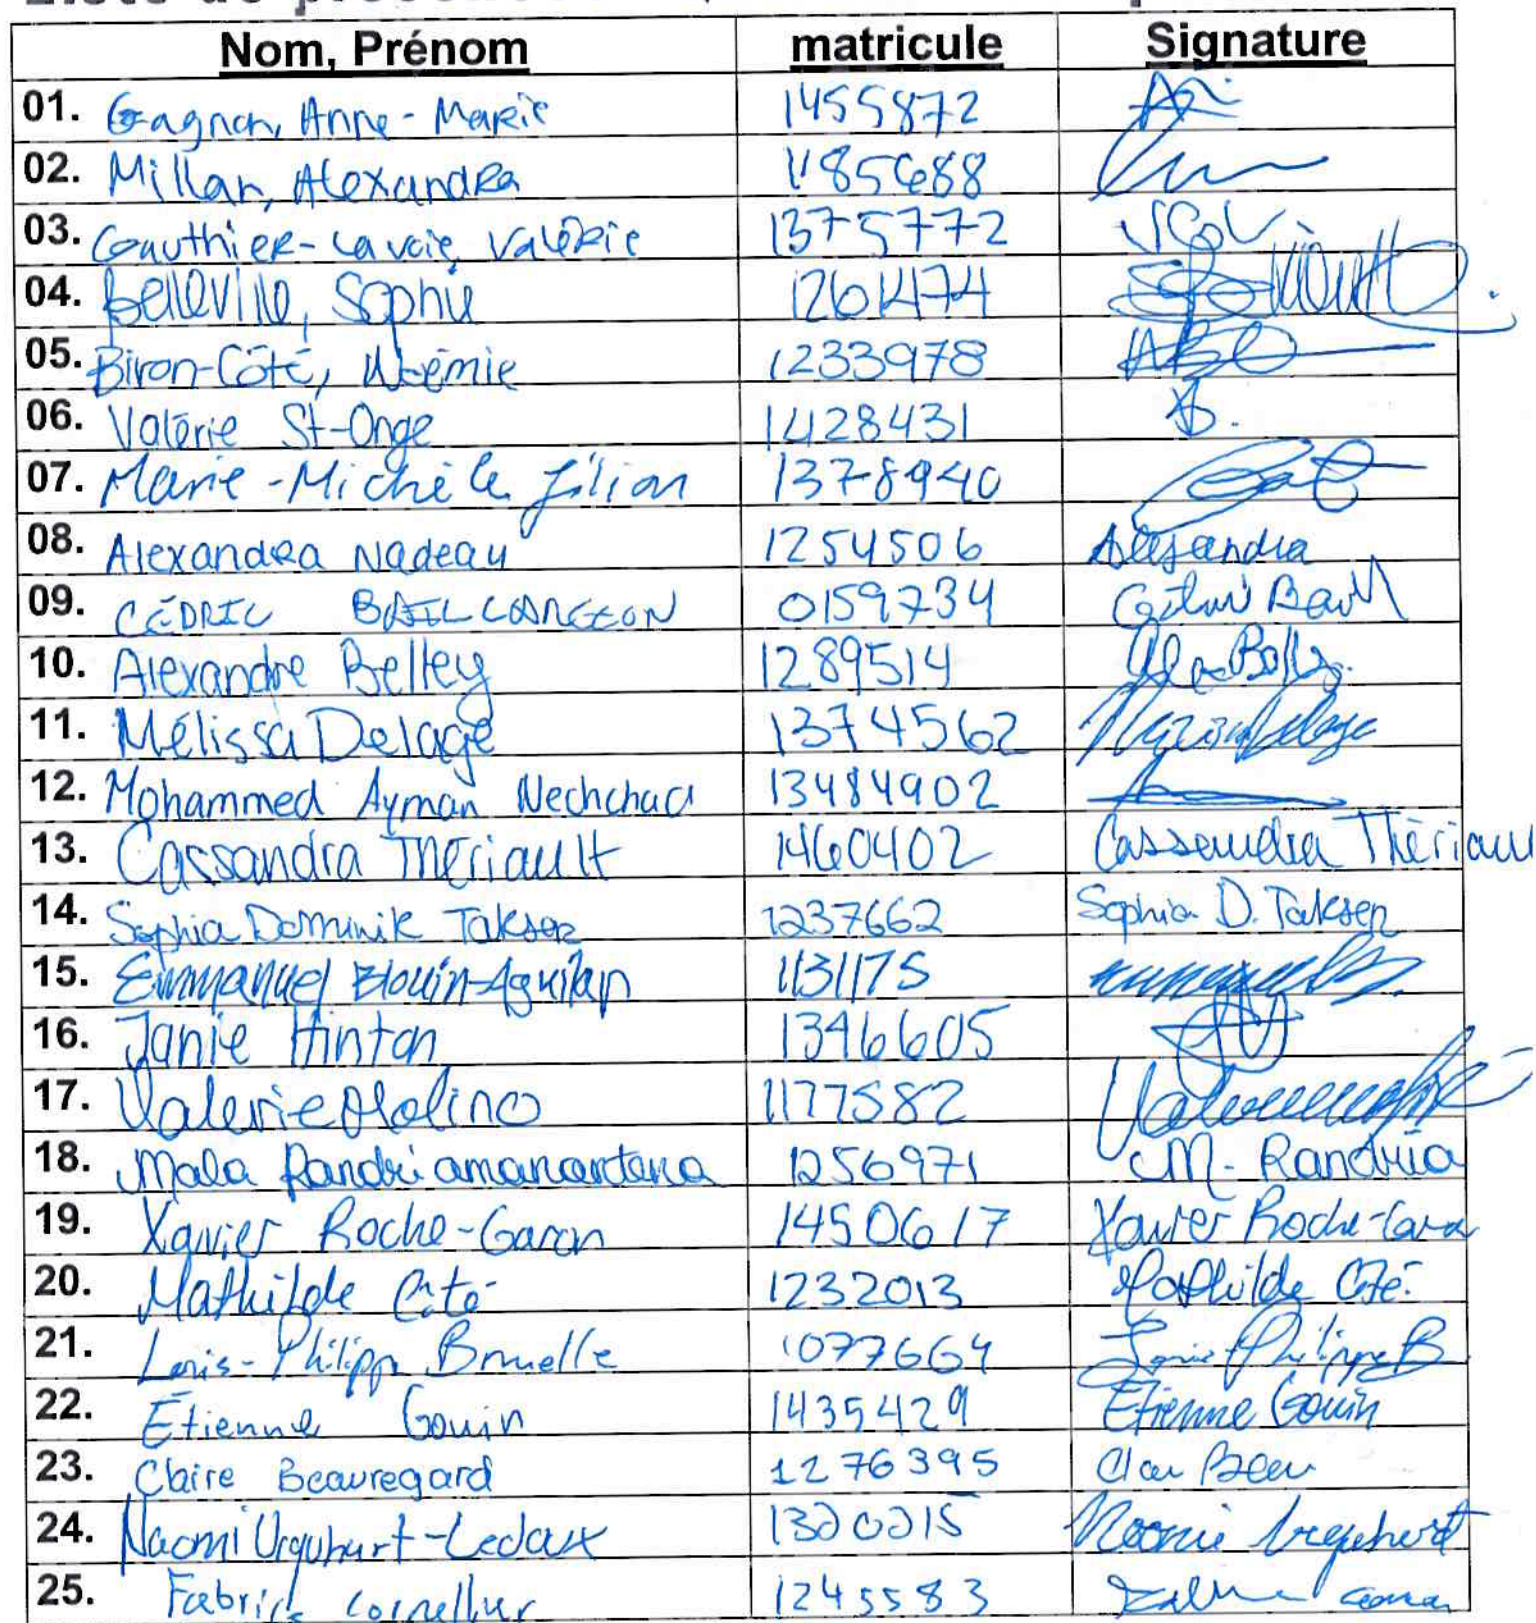 Nom, Prénom matricule Signature
01. Gagnon, Anne-Marie 1455872
02. Millan, Alexandra 1185688
03. Gauthier-Lavoie, Valérie 1375772 VGL
04. Belleville, Sophie 1261474
05. Biron-Côté, Noémie 1233978
06. Valérie St-Onge 1428431
07. Marie-Michèle Filion 1378940
08. Alexandra Nadeau 1254506 Alexandra
09. CÉDRIC BAILLARGEON 0159734
10. Alexandre Belley 1289514
11. Mélissa Delage 1374562
12. Mohammed Ayman Nechchad 13484902
13. Cassandra Thériault 1460402 Cassandra Thériau
14. Sophia Dominik Takser 1237662 Sophia D. Takser
15. Emmanuel Blouin-Aguilar 1131175
16. Janie Hinton 1346605
17. Valerie Molino 1177582
18. Mala Randriamanantena 1256971 M. Randria
19. Xavier Roche-Garon 1450617 Xavier Roche-Garon
20. Mathilde Côté 1232013 Mathilde Côté
21. Louis-Philippe Brouelle 1077664 Louis-Philippe B
22. Étienne Gouin 1435429 Étienne Gouin
23. Claire Beauregard 1276395
24. Naomi Urquhart-Ledoux 1320215 Naomi Urquhart
25. 1245583